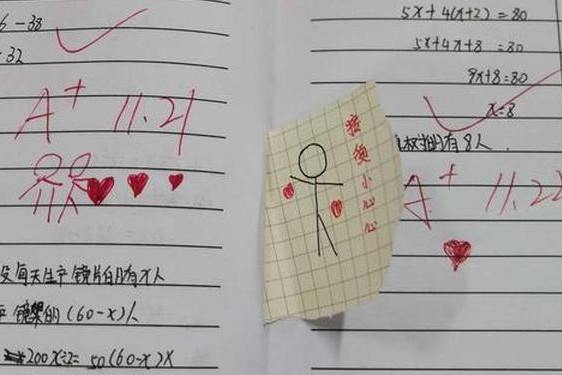 6-38
32
A+ 11.21
设每天生产镜片的有x人
镜架的(60-x)人
200x÷2= 50(60-x)x
接受小心心
5x+4(x+2)=80
5x+4x+8=80
9x+8=80
x=8
有8人.
A+ 11.22